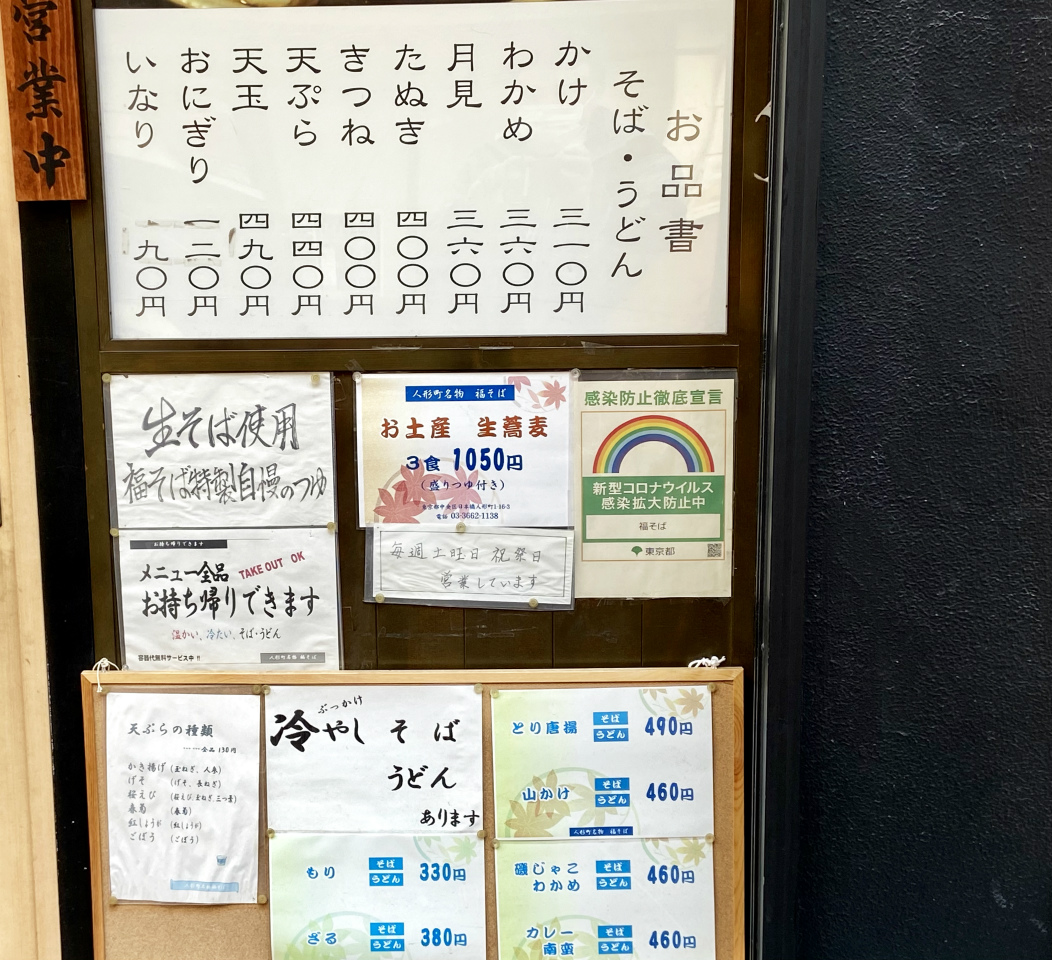 営業中
お品書
そば・うどん
かけ 三一〇円
わかめ 三六〇円
月見 三六〇円
たぬき 四〇〇円
きつね 四〇〇円
天ぷら 四四〇円
天玉 四九〇円
おにぎり 一二〇円
いなり 九〇円
生そば使用
福そば特製自慢のつゆ
人形町名物 福そば
お土産 生蕎麦
3食 1050円
(盛りつゆ付き)
東京都中央区日本橋人形町1-16-3
電話 03-3662-1138
毎週土曜日祝祭日
営業しています
感染防止徹底宣言
新型コロナウイルス
感染拡大防止中
福そば
東京都
お持ち帰りできます
メニュー全品 TAKE OUT OK
お持ち帰りできます
温かい、冷たい、そば・うどん
容器代無料サービス中!!
人形町名物 福そば
天ぷらの種類
……全品130円
かき揚げ(玉ねぎ、人参)
げそ(げそ、長ねぎ)
桜えび(桜えび、玉ねぎ、三つ葉)
春菊(春菊)
紅しょうが(紅しょうが)
ごぼう(ごぼう)
ぶっかけ
冷やし そば
うどん
あります
もり そば うどん 330円
ざる そば うどん 380円
とり唐揚 そば うどん 490円
山かけ そば うどん 460円
人形町名物 福そば
磯じゃこ
わかめ そば うどん 460円
カレー
南蛮 そば うどん 460円